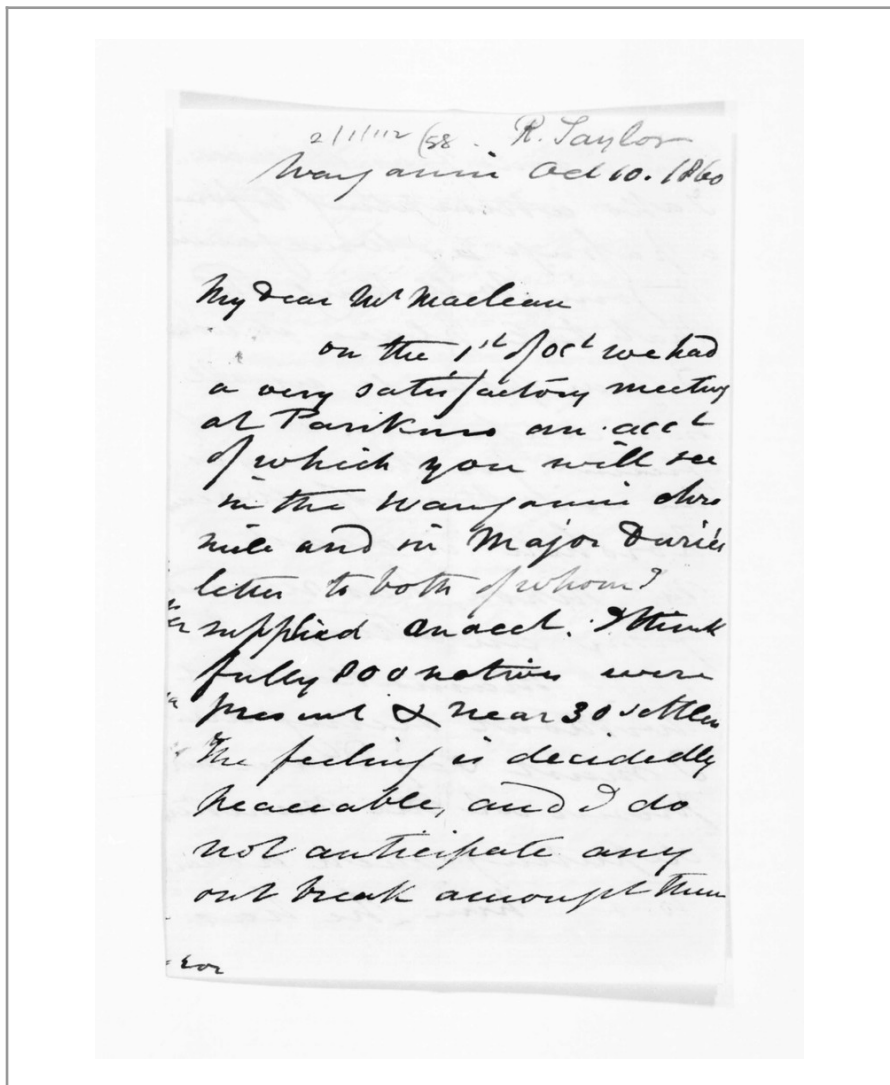 2/1/112 (58. R. Taylor
Wanganui Oct 10. 1860
My Dear Mr Maclean
on the 1st of Oct we had
a very satisfactory meeting
at Parikino an acct
of which you will see
in the Wanganui chro
nicle and in Major Durie's
letter to both of whom I
supplied an acct. I think
fully 800 natives were
present & near 30 settlers
The feeling is decidedly
peaceable, and I do
not anticipate any
out break amongst them